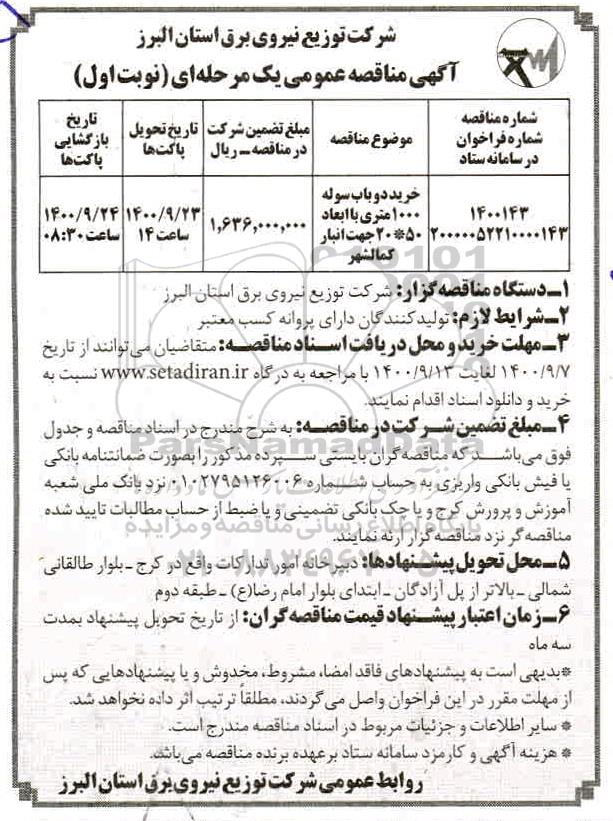 شرکت توزیع نیروی برق استان البرز
آگهی مناقصه عمومی یک مرحله‌ای (نوبت اول)
شماره مناقصه
شماره فراخوان
در سامانه ستاد
موضوع مناقصه
مبلغ تضمین شرکت
در مناقصه ـ ریال
تاریخ تحویل
پاکت‌ها
تاریخ
بازگشایی
پاکت‌ها
۱۴۰۰۱۴۳
۲۰۰۰۰۰۵۲۲۱۰۰۰۰۱۴۳
خرید دو باب سوله
۱۰۰۰ متری با ابعاد
۵۰*۲۰ جهت انبار
کمالشهر
۱,۶۳۶,۰۰۰,۰۰۰
۱۴۰۰/۹/۲۳
ساعت ۱۴
۱۴۰۰/۹/۲۴
ساعت ۰۸:۳۰
۱ـ دستگاه مناقصه گزار: شرکت توزیع نیروی برق استان البرز
۲ـ شرایط لازم: تولیدکنندگان دارای پروانه کسب معتبر
۳ـ مهلت خرید و محل دریافت اسناد مناقصه: متقاضیان می‌توانند از تاریخ
۱۴۰۰/۹/۷ لغایت ۱۴۰۰/۹/۱۳ با مراجعه به درگاه www.setadiran.ir نسبت به
خرید و دانلود اسناد اقدام نمایند.
۴ـ مبلغ تضمین شرکت در مناقصه: به شرح مندرج در اسناد مناقصه و جدول
فوق می‌باشد که مناقصه گران بایستی سپرده مذکور را بصورت ضمانتنامه بانکی
یا فیش بانکی واریزی به حساب شماره ۰۱۰۲۷۹۵۱۲۶۰۰۶ نزد بانک ملی شعبه
آموزش و پرورش کرج و یا چک بانکی تضمینی و یا ضبط از حساب مطالبات تایید شده
مناقصه گر نزد مناقصه گزار ارئه نمایند.
۵ـ محل تحویل پیشنهادها: دبیرخانه امور تدارکات واقع در کرج ـ بلوار طالقانی
شمالی ـ بالاتر از پل آزادگان ـ ابتدای بلوار امام رضا(ع) ـ طبقه دوم
۶ـ زمان اعتبار پیشنهاد قیمت مناقصه گران: از تاریخ تحویل پیشنهاد بمدت
سه ماه
*بدیهی است به پیشنهادهای فاقد امضا، مشروط، مخدوش و یا پیشنهادهایی که پس
از مهلت مقرر در این فراخوان واصل می گردند، مطلقاً ترتیب اثر داده نخواهد شد.
* سایر اطلاعات و جزئیات مربوط در اسناد مناقصه مندرج است.
* هزینه آگهی و کارمزد سامانه ستاد برعهده برنده مناقصه می‌باشد.
روابط عمومی شرکت توزیع نیروی برق استان البرز
ParsNamadData
پایگاه اطلاع رسانی مناقصه و مزایده